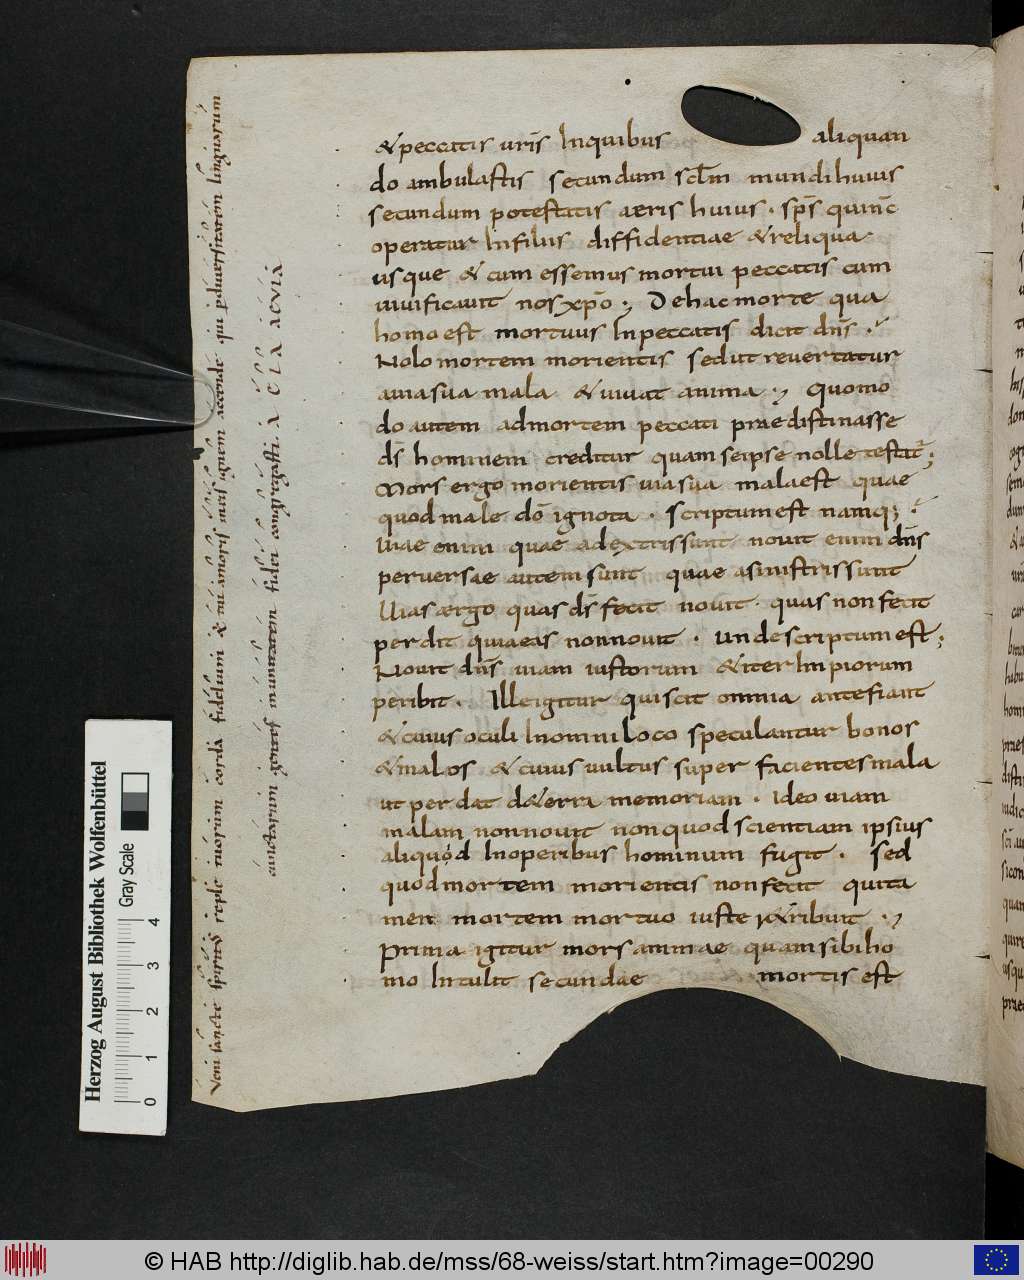 &peccatis uris̄ Inquibus aliquan
do ambulastis secundum sclm̄ mundi huius
secundum potestatis aeris huius · sps̄ quinc̄
operatur Infilius diffidentiae &reliqua
usque & cum essemus mortui peccatis cum
uiuificauit nos xp̄o ; Dehac morte qua
homo est mortuus Inpeccatis dicit dn̄s ·
Nolo mortem morientis sed ut reuertatur
auia sua mala &uiuat anima · Quomo
do autem admortem peccati praedistinasse
ds̄ hominem creditur quam seipse nolle testat̄ ;
Mors ergo morientis uia sua mala est quae
quod male dō ignota · scriptum est namq;
Uiae enim quae adextris sunt nouit enim dn̄s
peruersae autem sunt quae asinistris sunt
Uias aergo quas ds̄ fecit nouit · quas non fecit
perdit quia eas non nouit · unde scriptum est ;
Nouit dn̄s uiam iustorum &iter Impiorum
peribit · Ille igitur qui scit omnia antefiant
&cuius oculi Inomni loco speculantur bonos
&malos &cuius uultus super facientes mala
ut perdat d&erra memoriam · Ideo uiam
malam non nouit non quod scientiam ipsius
aliquod Inoperibus hominum fugit · sed
quod mortem morientis non fecit qui ta
men mortem mortuo iuste r&ribuit ·
Prima igitur mors animae quam sibi ho
mo Intulit secundae mortis est
Veni sancte spiritus reple tuorum corda fidelium & tui amoris in eis ignem accende qui p diuersitatem linguarum
cunctarum gentes in unitatem fidei congregasti A E L A A E V I A
Herzog August Bibliothek Wolfenbüttel
Gray Scale
0 1 2 3 4
© HAB http://diglib.hab.de/mss/68-weiss/start.htm?image=00290